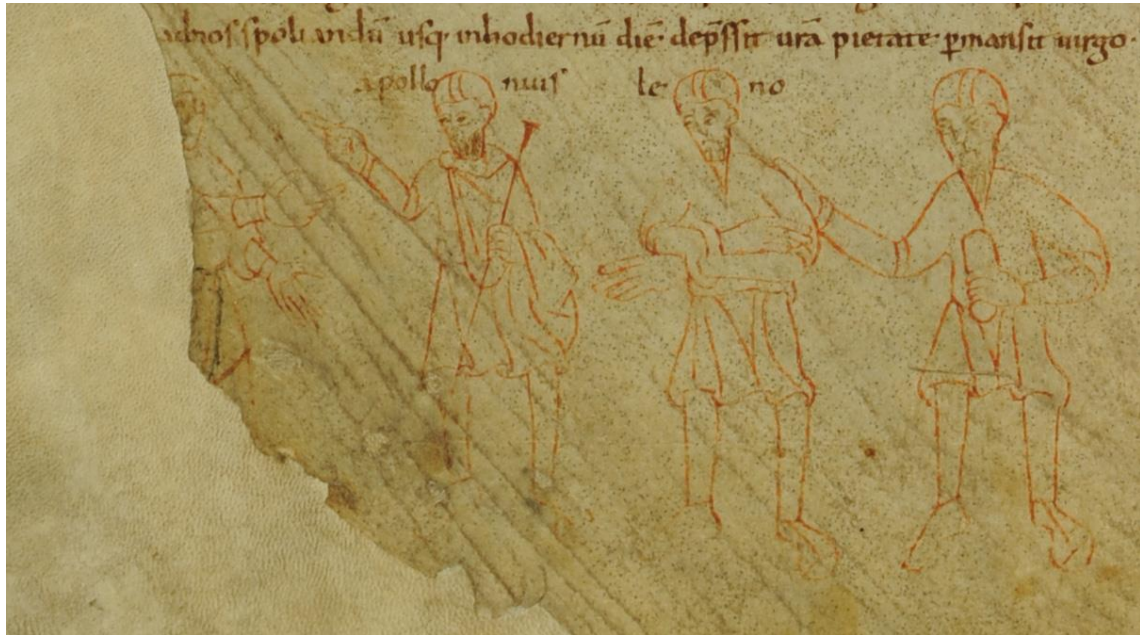 adhos spoliandū usq; inhodiernū diē dep̄ssit urā pietate p̄mansit uirgo·
apollo nius le no